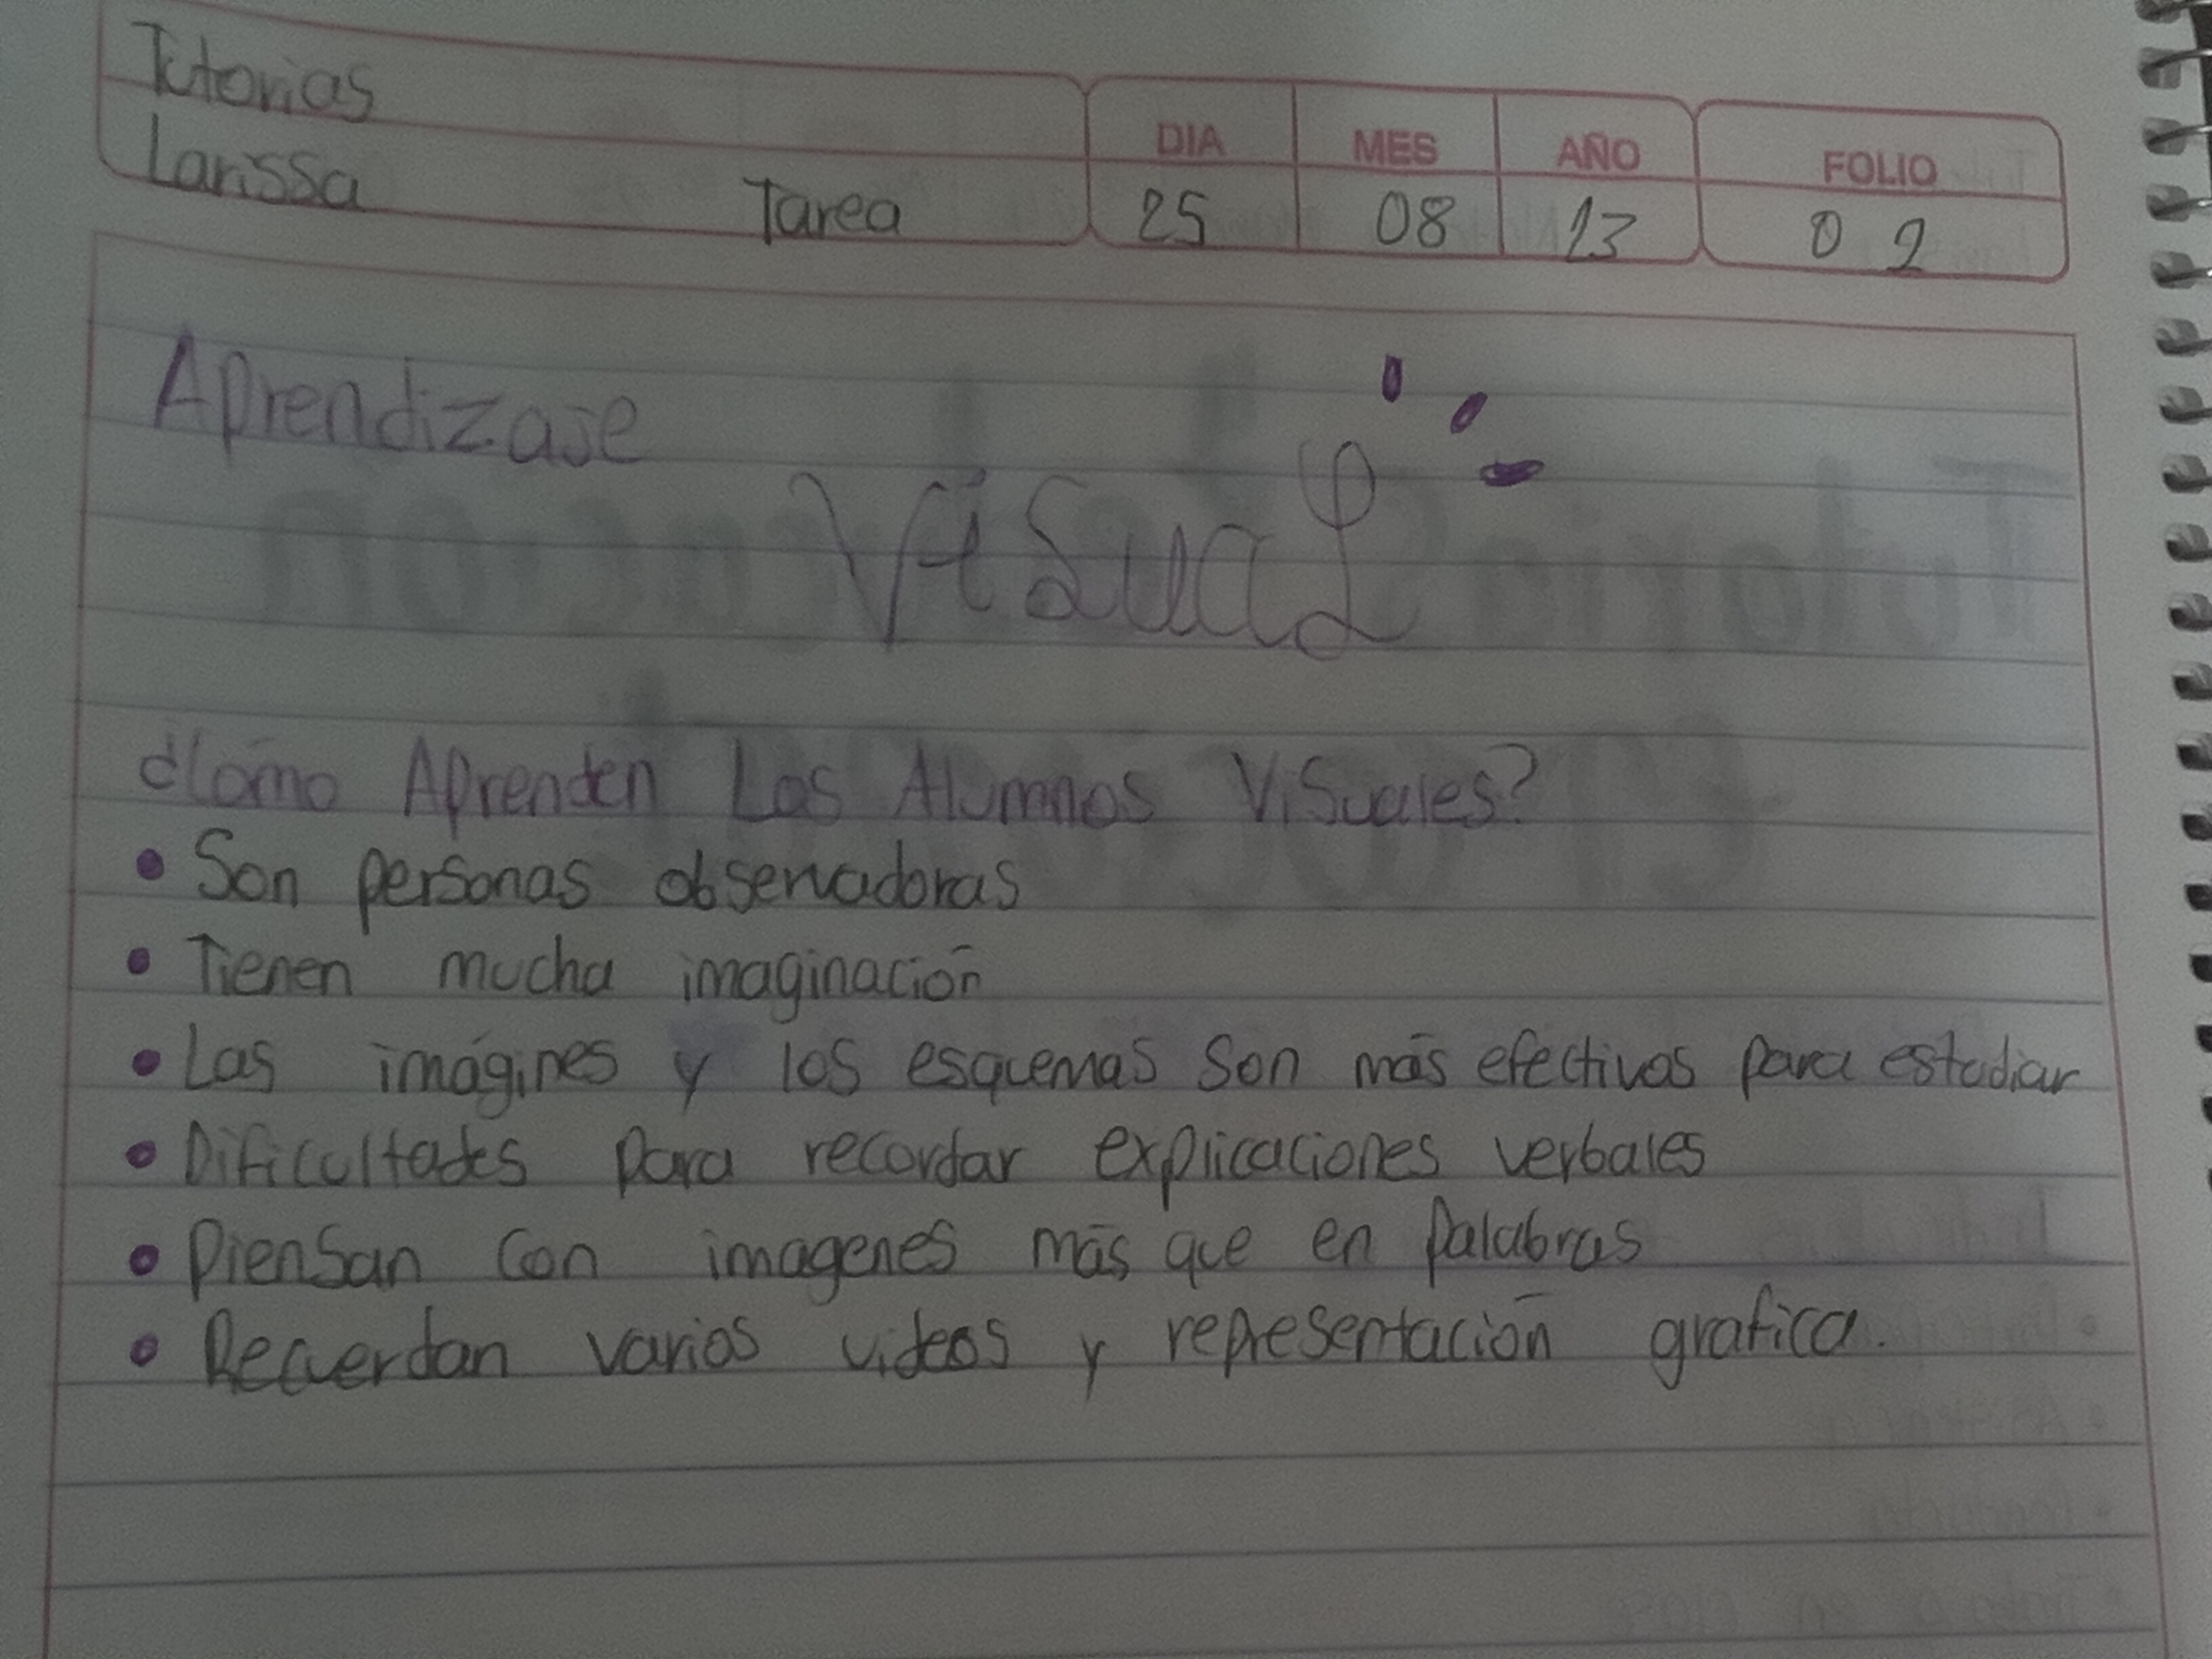 Tutorias
Larissa Tarea
DIA MES AÑO FOLIO
25 08 23 02
Aprendizaje
Visual
¿Cómo Aprenden Los Alumnos Visuales?
• Son personas observadoras
• Tienen mucha imaginación
• Las imágines y los esquemas son más efectivos para estudiar
• Dificultades para recordar explicaciones verbales
• Piensan con imagenes más que en palabras
• Recuerdan varios videos y representación grafica.